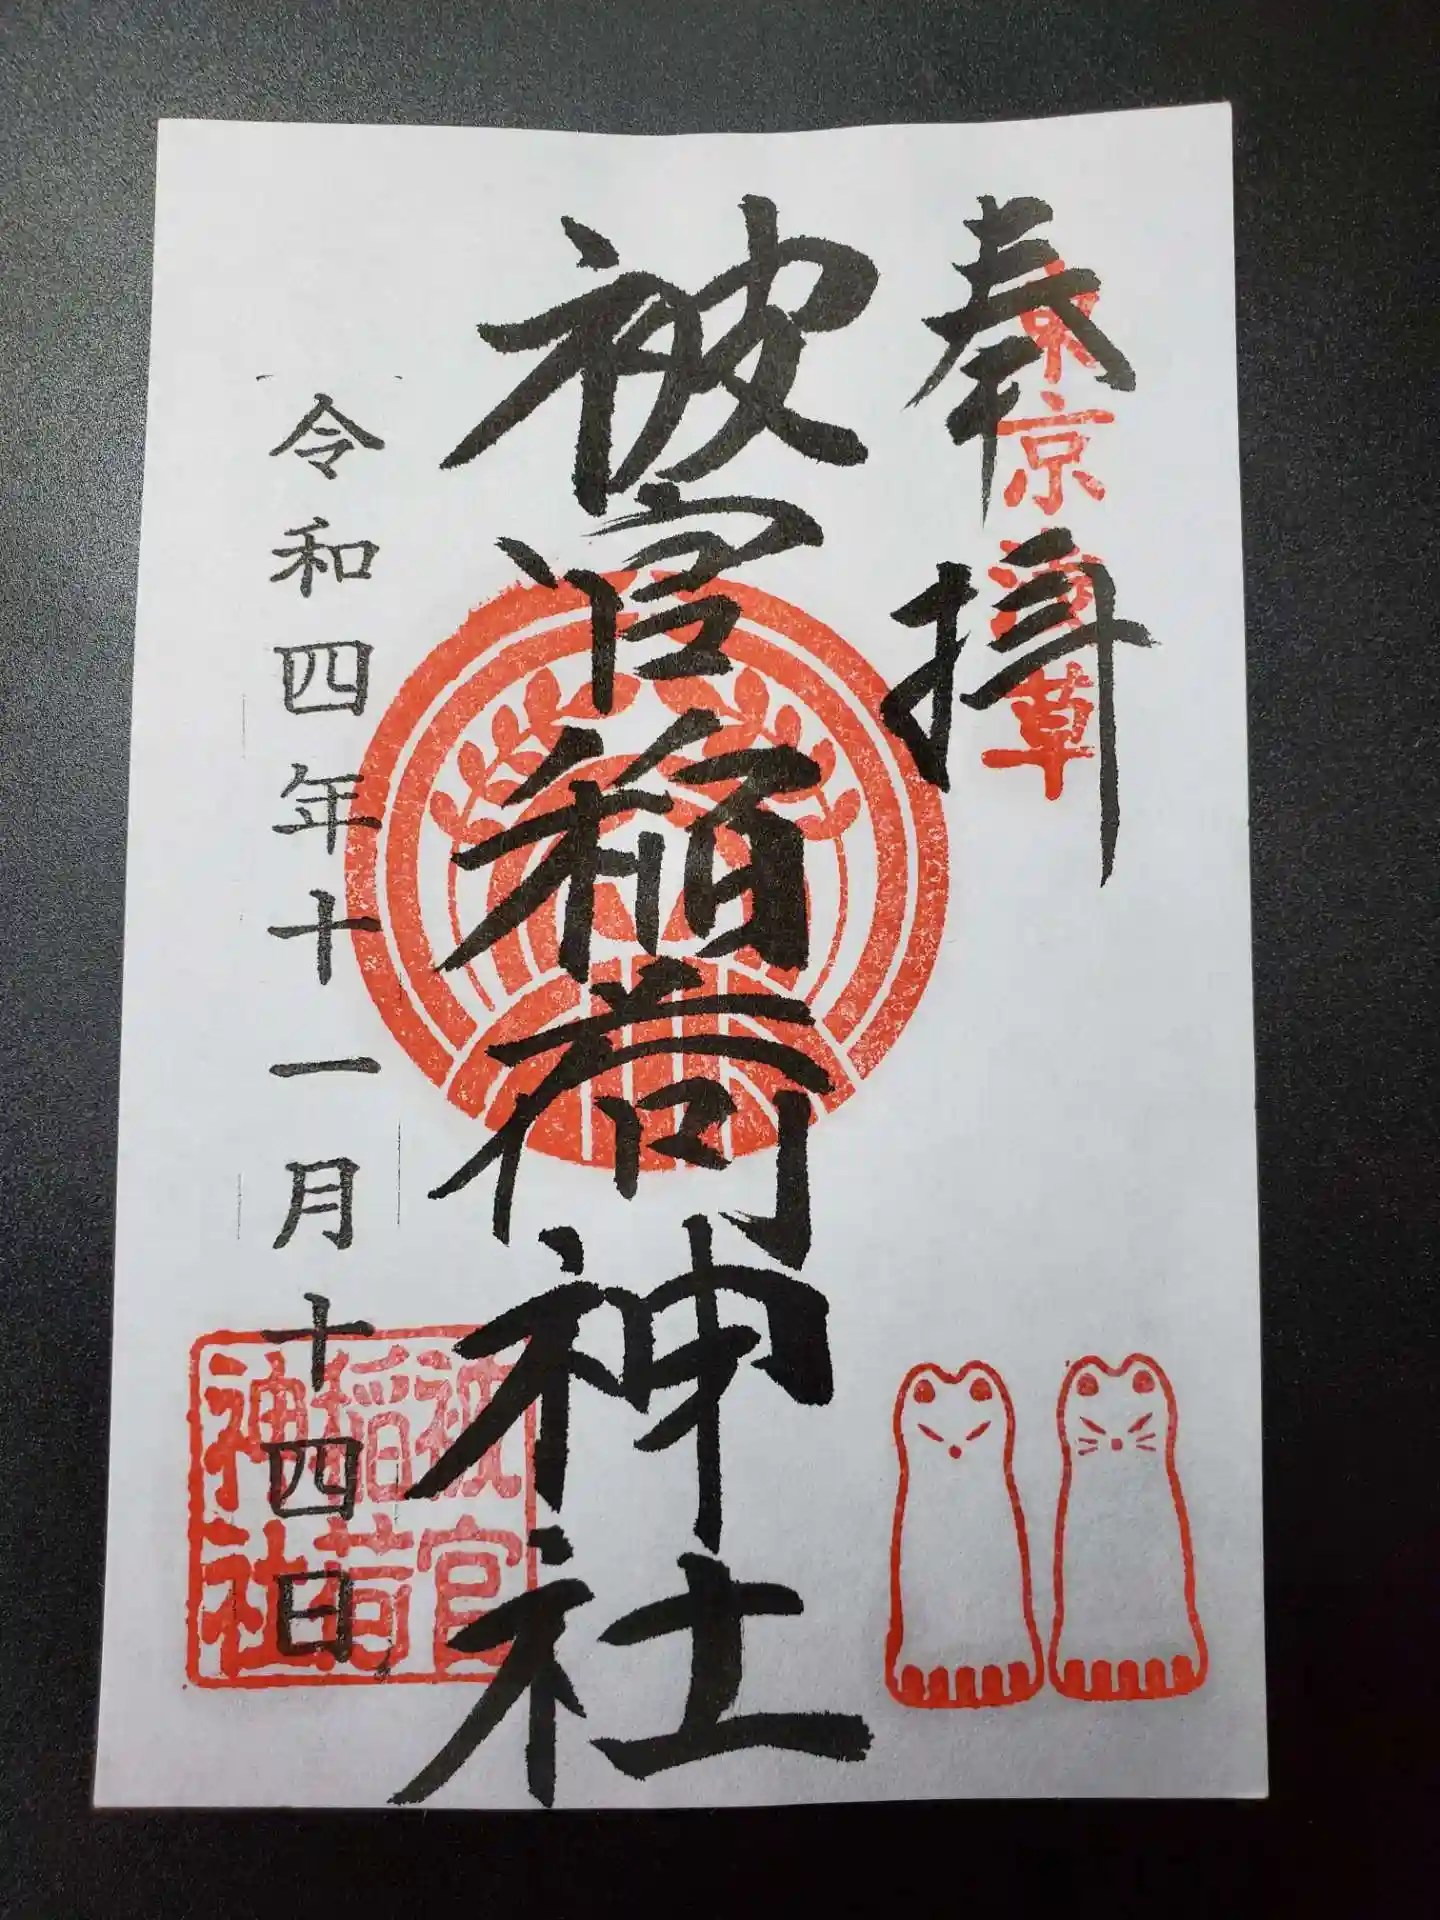 奉拝
東京浅草
被官稲荷神社
令和四年十一月十四日
被官
稲荷
神社